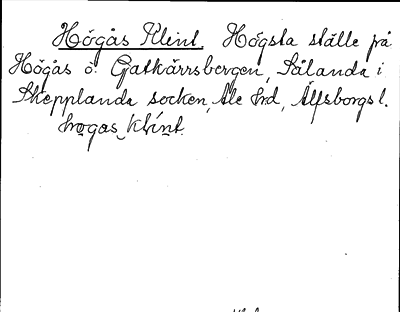 Högås Klint. Högsta ställe på
Högås o. Gatkärrsbergen, Sålanda i
Skepplanda socken, Ale hrd, Älfsborgs l.
hogas klint